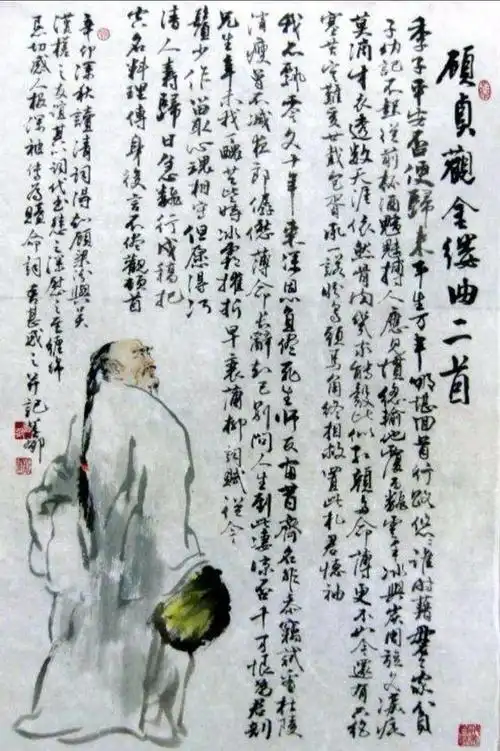 顧貞觀金縷曲二首
季子平安否便歸來平生萬事那堪回首行路悠悠誰慰藉母老家貧
子幼記不起從前杯酒魑魅搏人應見慣總輸他覆雨翻雲手冰與炭周旋久淚痕
莫滴牛衣透數天涯依然骨肉幾家能彀比似紅顏多命薄更不如今還有只絕
塞苦寒難受廿載包胥承一諾盼烏頭馬角終相救置此札君懷袖
我亦飄零久十年來深恩負盡死生師友宿昔齊名非忝竊試看杜陵
消瘦曾不減夜郎僝僽薄命長辭知己別問人生到此凄涼否千萬恨為君剖
兄生辛未我丁丑共些時冰霜摧折早衰蒲柳詞賦從今
須少作留取心魂相守但願得河
清人壽歸日急翻行戍稿把
空名料理傳身後言不盡觀頓首
辛卯深秋讀清詞得知顧梁汾與吳
漢槎之友誼其以詞代書之深慰之至纏綿
悲切感人極深被傳為贖命詞吾甚感之并記